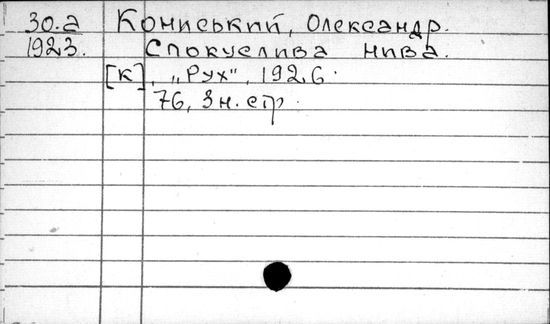 30.а Кониський, Олександр.
1923. Спокуслива нива.
[К], „Рух", 1926.
76, 3 н. стр.